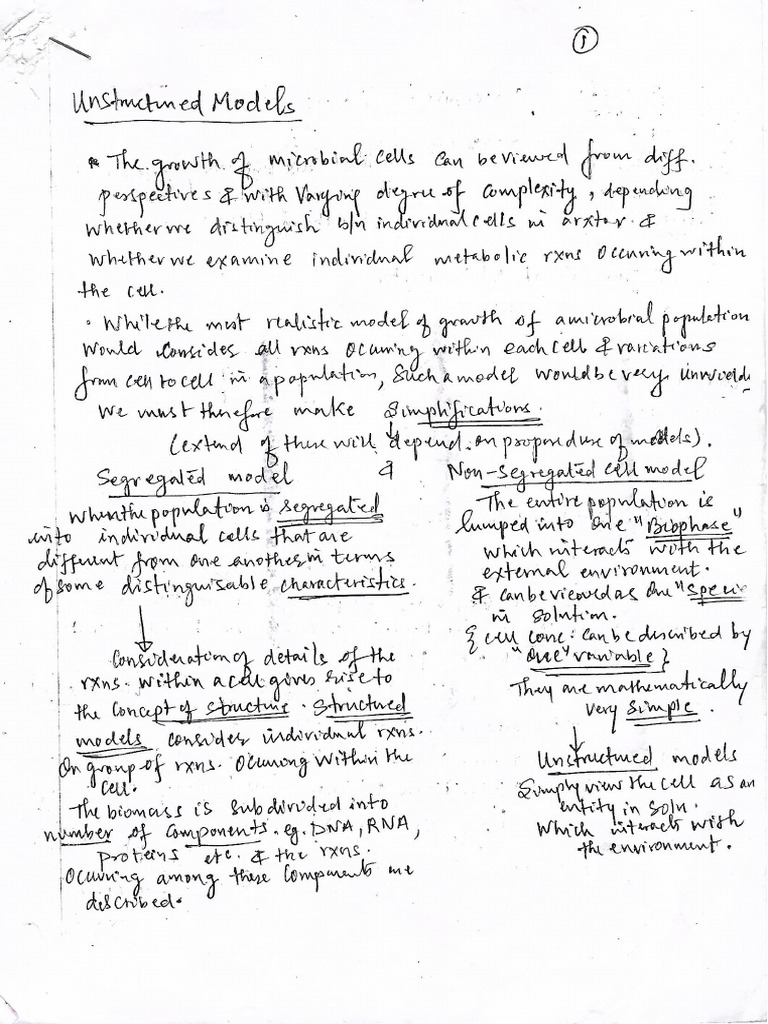 ①
Unstructured Models
* The growth of microbial cells can be viewed from diff.
perspectives & with varying degree of complexity, depending
whether we distinguish b/n individual cells in a rxtor &
whether we examine individual metabolic rxns occuring within
the cell.
• While the most realistic model of growth of a microbial population
would consider all rxns occuring within each cell & variations
from cell to cell in a population, such a model would be very unwield
We must therefore make simplifications.
(extend of these will depend on purpose of models).
Segregated model
When the population is segregated
into individual cells that are
different from one another in terms
of some distinguisable characteristics.
Consideration of details of the
rxns. within a cell gives rise to
the concept of structure. Structured
models consider individual rxns.
or group of rxns. occuring within the
cell.
The biomass is subdivided into
number of components. eg. DNA, RNA,
proteins etc. & the rxns.
occurring among these components are
described.
&
Non-segregated cell model
The entire population is
lumped into one "Biophase"
which interacts with the
external environment.
& can be viewed as one "speci
in solution.
{cell conc: can be described by
"one" variable}
They are mathematically
very simple.
Unstructured models
Simply view the cell as an
entity in soln.
which interacts with
the environment.